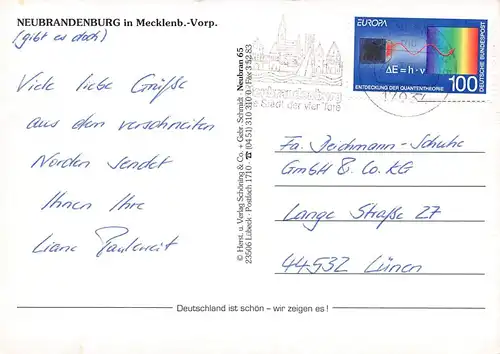 NEUBRANDENBURG in Mecklenb.-Vorp.
(gibt es doch)
Viele liebe Grüße
aus dem verschneiten
Norden sendet
Ihnen Ihre
Liane Pauleweit
© Herst. u. Verlag Schöning & Co. + Gebr. Schmidt Neubran 65
23506 Lübeck · Postfach 1710 · ☎ (04 51) 310 310 · Fax 3 52 83
die Stadt der vier Tore
EUROPA
ΔE = h · ν
ENTDECKUNG DER QUANTENTHEORIE
100
DEUTSCHE BUNDESPOST
Fa. Deichmann-Schuhe
GmbH & Co. KG
Lange Straße 27
44532 Lünen
Deutschland ist schön – wir zeigen es!